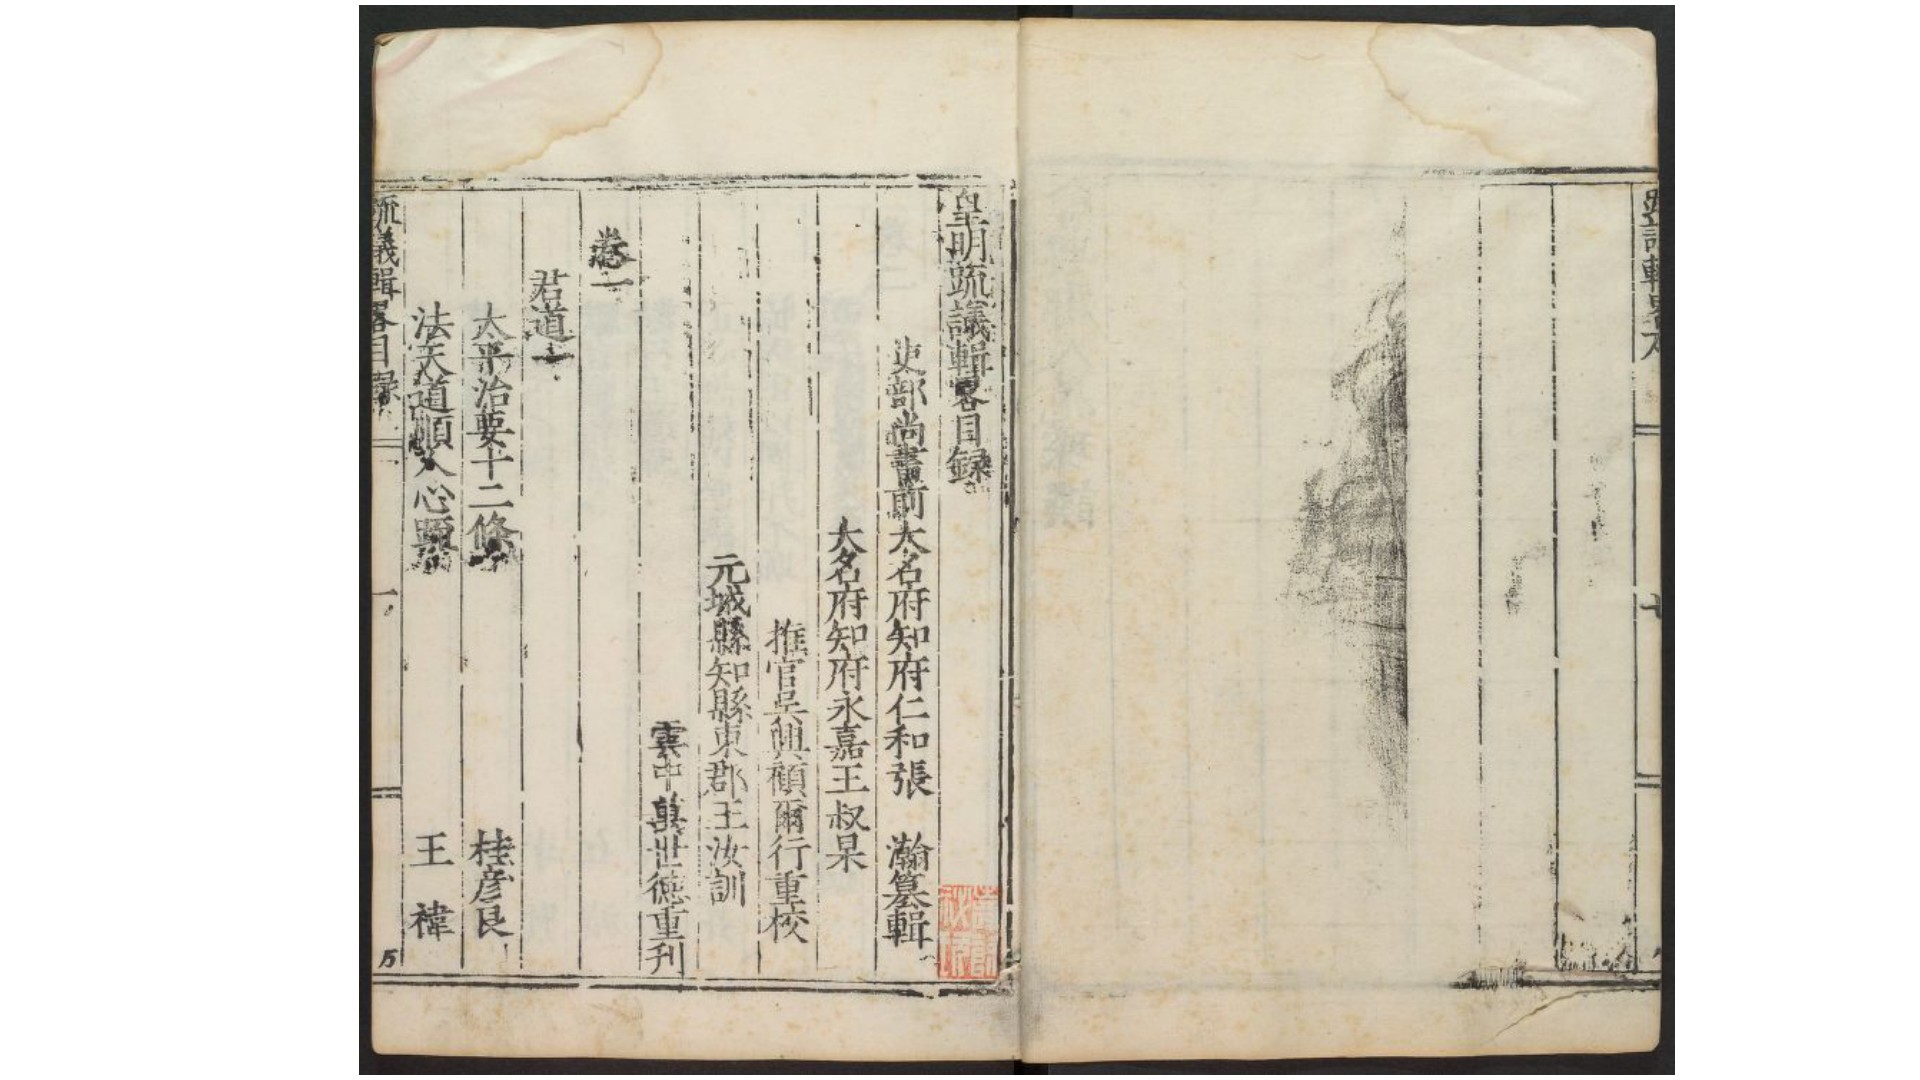 皇明疏議輯畧目録
吏部尚書前大名府知府仁和張瀚篡輯
大名府知府永嘉王叔杲
推官吳興顧爾行重校
元城縣知縣東郡王汝訓
雲中萬世德重刊
卷一
君道一
太平治要十二條 桂彥良
法天道順人心疏 王禕
疏議輯畧目録
一